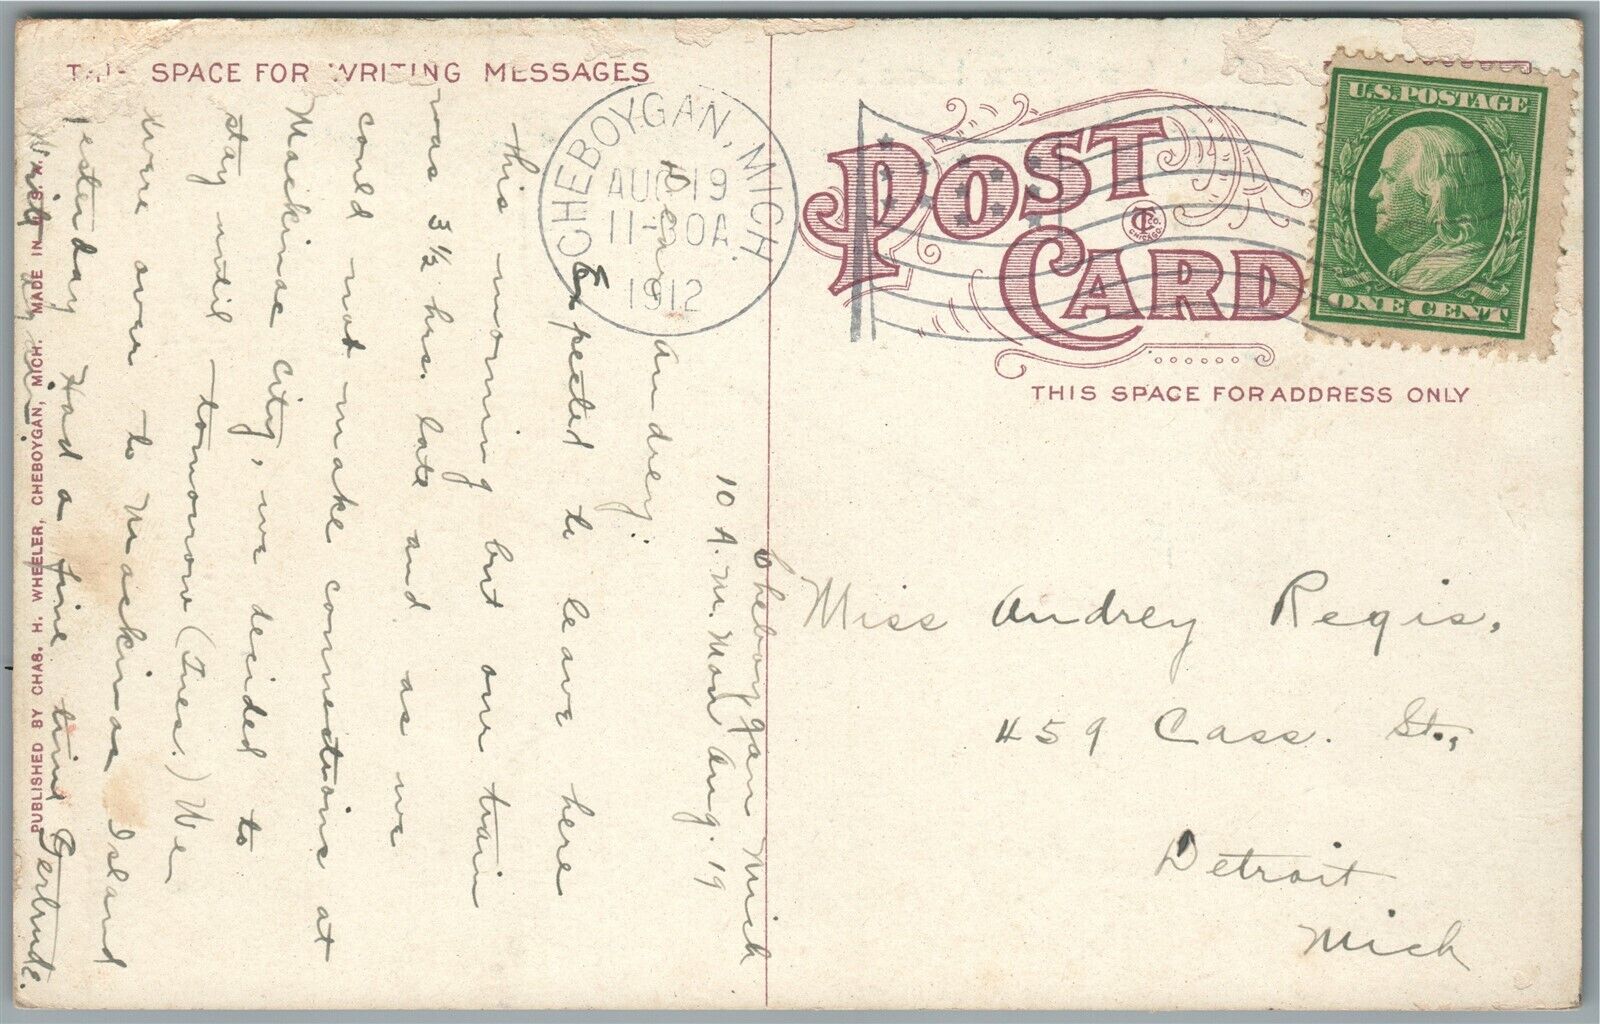 THIS SPACE FOR WRITING MESSAGES
Cheboygan Mich
10 A.M. Mon Aug. 19
Dear Audrey:
Expected to leave here
this morning but our train
was 3 1/2 hrs. late and as we
could not make connections at
Mackinac City, we decided to
stay until tomorrow (Tues.) We
were over to Mackinac Island
yesterday Had a fine time
Gertrude.
PUBLISHED BY CHAS. H. WHEELER, CHEBOYGAN, MICH. MADE IN U.S.A.
CHEBOYGAN, MICH.
AUG 19
11-30A
1912
POST
CARD
CO.
CHICAGO.
THIS SPACE FOR ADDRESS ONLY
U.S. POSTAGE
ONE CENT
Miss Audrey Regis.
459 Cass. St.,
Detroit
Mich